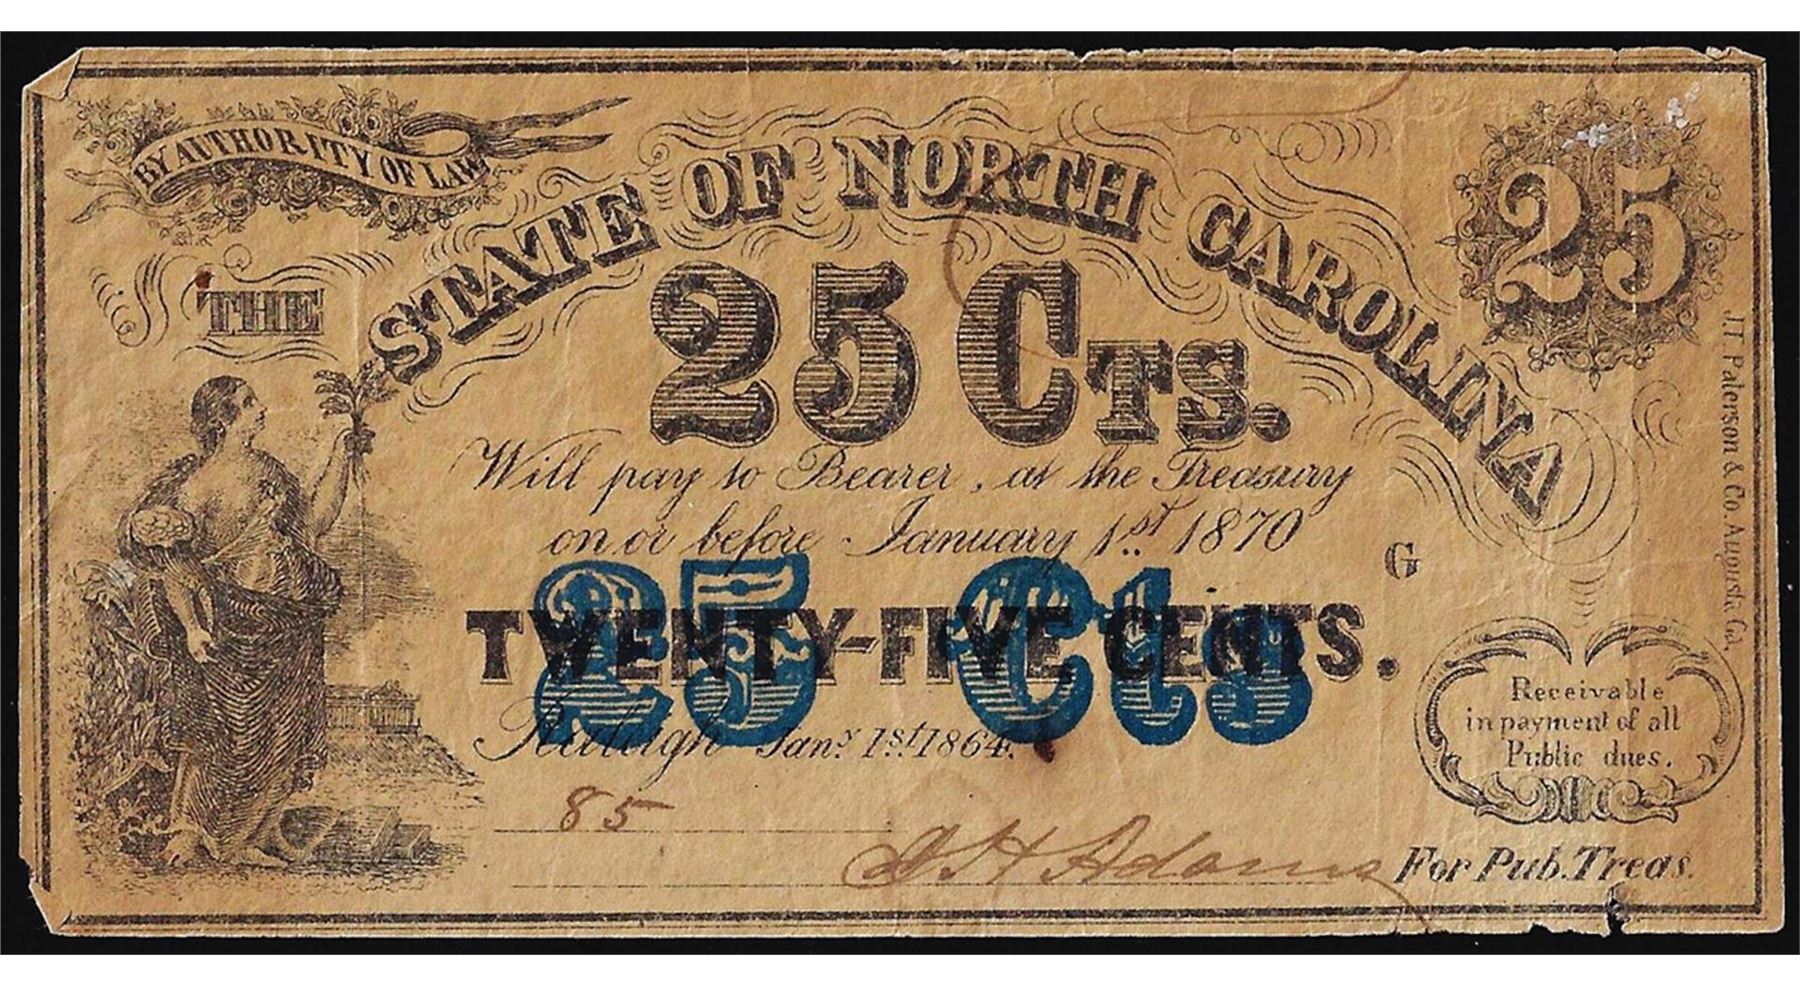 BY AUTHORITY OF LAW
25
THE
STATE OF NORTH CAROLINA
25 CTS.
Will pay to Bearer, at the Treasury
on or before January 1st. 1870
G
TWENTY-FIVE CENTS.
25 Cts
Raleigh Jany. 1st. 1864.
85
Receivable
in payment of all
Public dues.
J H Adams For Pub. Treas.
J.T. Paterson & Co. Augusta Ga.